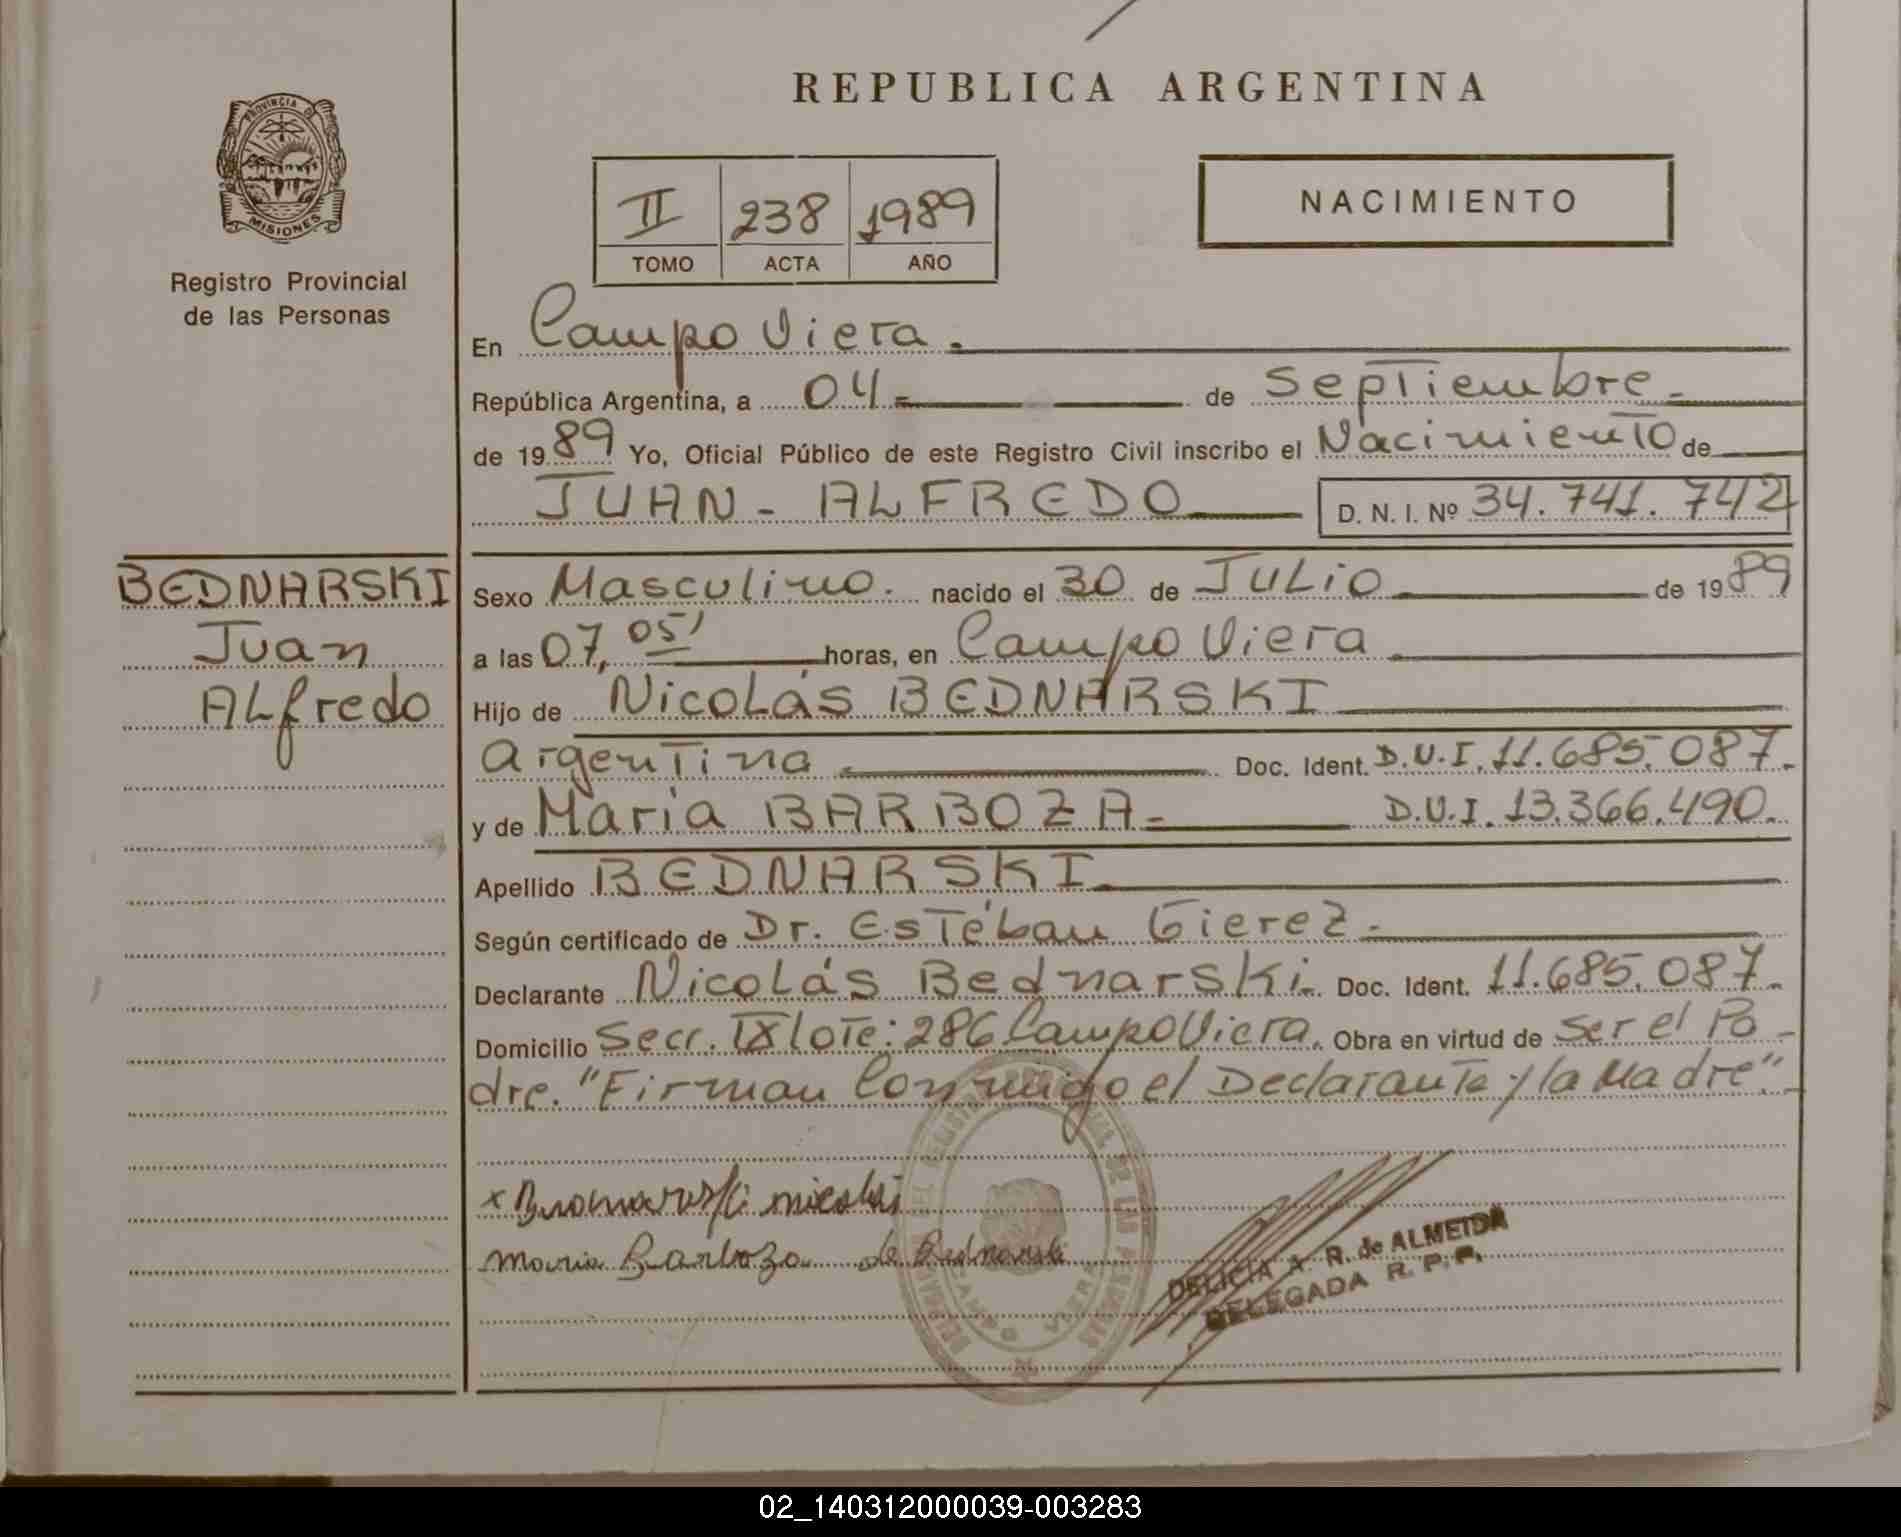 REPUBLICA ARGENTINA
PROVINCIA D
MISIONES
Registro Provincial
de las Personas
II 238 1989
TOMO ACTA AÑO
NACIMIENTO
En Campo Viera.
República Argentina, a 04 = de Septiembre
de 1989 Yo, Oficial Público de este Registro Civil inscribo el Nacimiento de
JUAN - ALFREDO D. N. I. Nº 34.741.742
BEDNARSKI
Juan
Alfredo
Sexo Masculino. nacido el 30 de JULIO de 1989
a las 07, 05' horas, en Campo Viera
Hijo de Nicolás BEDNARSKI
Argentina Doc. Ident. D.U.I. 11.685.087.
y de Maria BARBOZA.= D.U.I. 13.366.490.
Apellido BEDNARSKI
Según certificado de Dr. Estéban Gierez.
Declarante Nicolás Bednarski. Doc. Ident. 11.685.087.
Domicilio Secc. IX lote: 286 Campo Viera. Obra en virtud de ser el Pa-
dre. "Firman Conmigo el Declarante y la Madre".
Maria Barboza de Bednarski
DELICIA A. R. de ALMEIDA
DELEGADA R. P. P.
02_140312000039-003283